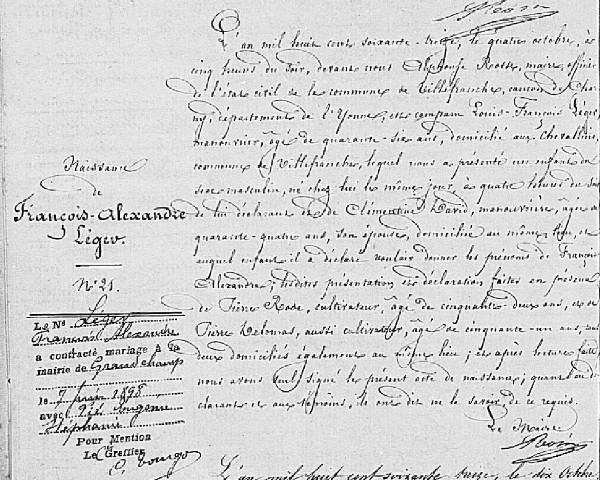 L'an mil huit cent soixante-treize, le quatre octobre, à
cinq heures du soir, devant nous Alphonse Rosse, maire, officier
de l'état civil de la commune de Villefranche, canton de Char-
ny, département de l'Yonne, est comparu Louis-François Léger,
manouvrier, âgé de quarante-six ans, domicilié aux Chevallins,
commune de Villefranche, lequel nous a présenté un enfant du
sexe masculin, né chez lui le même jour, à quatre heures du soir
de lui déclarant et de Clémentine David, manouvrière, âgée de
quarante-quatre ans, son épouse, domiciliée au même lieu, et
auquel enfant il a déclaré vouloir donner les prénoms de François
Alexandre; lesdites présentation et déclaration faites en présence
de Pierre Rose, cultivateur, âgé de cinquante deux ans, et de
Pierre Delomas, aussi cultivateur, âgé de cinquante-un ans, tous
deux domiciliés également au même lieu; et après lecture faite
nous avons seul signé le présent acte de naissance; quant au dé-
clarant et aux témoins, ils ont dit ne le savoir, de ce requis.
Le Maire
Naissance
de
François-Alexandre
Léger.
N° 21.
Le Né Léger
François Alexandre
a contracté mariage à la
mairie de Grandchamp
le 7 1898
avec
Stéphanie
Pour Mention
Le Greffier
L'an mil huit cent soixante treize, le dix Octobre